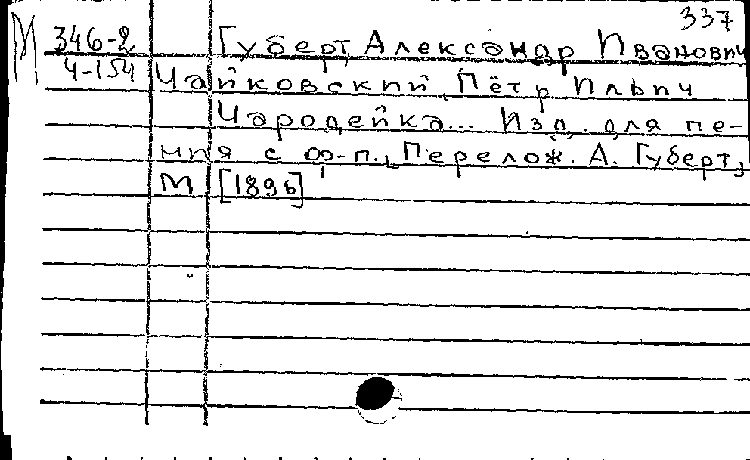 337
М 346-2 Губерт, Александр Иванович
Ч-154 Чайковский, Пётр Ильич
Чародейка... Изд. для пе-
ния с ф-п., Перелож. А. Губерт,
М [1896]